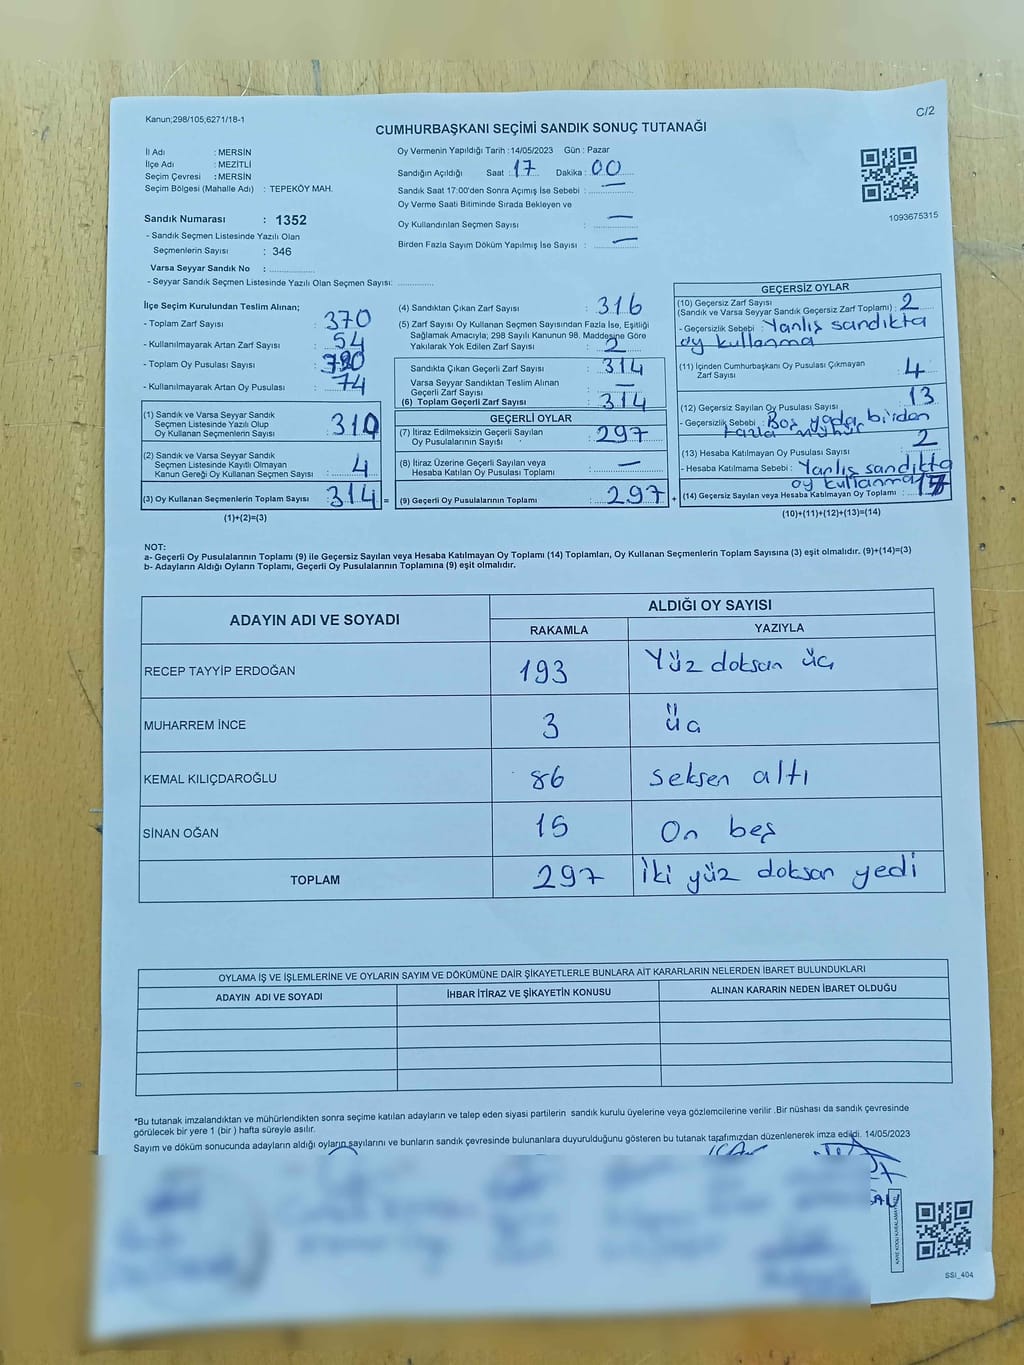 Kanun;298/105,6271/18-1
C/2
CUMHURBAŞKANI SEÇİMİ SANDIK SONUÇ TUTANAĞI
İl Adı : MERSİN
İlçe Adı : MEZİTLİ
Seçim Çevresi : MERSİN
Seçim Bölgesi (Mahalle Adı) : TEPEKÖY MAH.
Sandık Numarası : 1352
- Sandık Seçmen Listesinde Yazılı Olan
Seçmenlerin Sayısı : 346
Varsa Seyyar Sandık No :
- Seyyar Sandık Seçmen Listesinde Yazılı Olan Seçmen Sayısı:
Oy Vermenin Yapıldığı Tarih : 14/05/2023 Gün : Pazar
Sandığın Açıldığı Saat : 17 Dakika : 00
Sandık Saat 17:00'den Sonra Açımış İse Sebebi : —
Oy Verme Saati Bitiminde Sırada Bekleyen ve
Oy Kullandırılan Seçmen Sayısı : —
Birden Fazla Sayım Döküm Yapılmış İse Sayısı : —
1093675315
İlçe Seçim Kurulundan Teslim Alınan;
- Toplam Zarf Sayısı : 370
- Kullanılmayarak Artan Zarf Sayısı : 54
- Toplam Oy Pusulası Sayısı :
- Kullanılmayarak Artan Oy Pusulası : 74
(1) Sandık ve Varsa Seyyar Sandık
Seçmen Listesinde Yazılı Olup
Oy Kullanan Seçmenlerin Sayısı : 310
(2) Sandık ve Varsa Seyyar Sandık
Seçmen Listesinde Kayıtlı Olmayan
Kanun Gereği Oy Kullanan Seçmen Sayısı : 4
(3) Oy Kullanan Seçmenlerin Toplam Sayısı : 314 =
(1)+(2)=(3)
(4) Sandıktan Çıkan Zarf Sayısı : 316
(5) Zarf Sayısı Oy Kullanan Seçmen Sayısından Fazla İse, Eşitliği
Sağlamak Amacıyla; 298 Sayılı Kanunun 98. Maddesine Göre
Yakılarak Yok Edilen Zarf Sayısı : 2
Sandıkta Çıkan Geçerli Zarf Sayısı : 314
Varsa Seyyar Sandıktan Teslim Alınan
Geçerli Zarf Sayısı : —
(6) Toplam Geçerli Zarf Sayısı : 314
GEÇERLİ OYLAR
(7) İtiraz Edilmeksizin Geçerli Sayılan
Oy Pusulalarının Sayısı : 297
(8) İtiraz Üzerine Geçerli Sayılan veya
Hesaba Katılan Oy Pusulası Toplamı : —
(9) Geçerli Oy Pusulalarının Toplamı : 297 +
GEÇERSİZ OYLAR
(10) Geçersiz Zarf Sayısı
(Sandık ve Varsa Seyyar Sandık Geçersiz Zarf Toplamı) : 2
- Geçersizlik Sebebi : Yanlış sandıkta
oy kullanma
(11) İçinden Cumhurbaşkanı Oy Pusulası Çıkmayan
Zarf Sayısı : 4
(12) Geçersiz Sayılan Oy Pusulası Sayısı : 13
- Geçersizlik Sebebi : Boş yada birden
fazla mühür
(13) Hesaba Katılmayan Oy Pusulası Sayısı : 2
- Hesaba Katılmama Sebebi : Yanlış sandıkta
oy kullanma
(14) Geçersiz Sayılan veya Hesaba Katılmayan Oy Toplamı : 17
(10)+(11)+(12)+(13)=(14)
NOT:
a- Geçerli Oy Pusulalarının Toplamı (9) ile Geçersiz Sayılan veya Hesaba Katılmayan Oy Toplamı (14) Toplamları, Oy Kullanan Seçmenlerin Toplam Sayısına (3) eşit olmalıdır. (9)+(14)=(3)
b- Adayların Aldığı Oyların Toplamı, Geçerli Oy Pusulalarının Toplamına (9) eşit olmalıdır.
ADAYIN ADI VE SOYADI ALDIĞI OY SAYISI
RAKAMLA YAZIYLA
RECEP TAYYİP ERDOĞAN 193 Yüz doksan üç
MUHARREM İNCE 3 üç
KEMAL KILIÇDAROĞLU 86 seksen altı
SİNAN OĞAN 15 On beş
TOPLAM 297 İki yüz doksan yedi
OYLAMA İŞ VE İŞLEMLERİNE VE OYLARIN SAYIM VE DÖKÜMÜNE DAİR ŞİKAYETLERLE BUNLARA AİT KARARLARIN NELERDEN İBARET BULUNDUKLARI
ADAYIN ADI VE SOYADI İHBAR İTİRAZ VE ŞİKAYETİN KONUSU ALINAN KARARIN NEDEN İBARET OLDUĞU
*Bu tutanak imzalandıktan ve mühürlendikten sonra seçime katılan adayların ve talep eden siyasi partilerin sandık kurulu üyelerine veya gözlemcilerine verilir .Bir nüshası da sandık çevresinde
görülecek bir yere 1 (bir ) hafta süreyle asılır.
Sayım ve döküm sonucunda adayların aldığı oyların sayılarını ve bunların sandık çevresinde bulunanlara duyurulduğunu gösteren bu tutanak tarafımızdan düzenlenerek imza edildi. 14/05/2023
SSİ_404